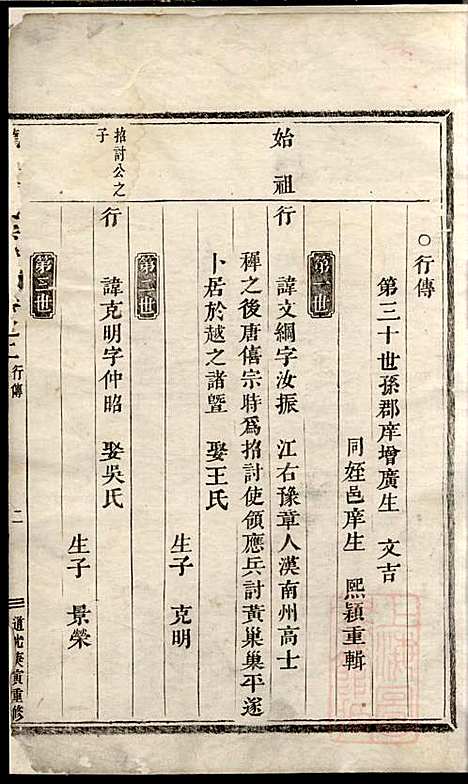 ○行傳
第三十世孫郡庠增廣生 文吉
同姪邑庠生 熙穎重輯
第一世
始祖行 諱文綱字汝振 江右豫章人漢南州高士
穉之後唐僖宗時爲招討使領應兵討黃巢巢平遂
卜居於越之諸暨 娶王氏
生子 克明
第二世
招討公之子
行 諱克明字仲昭 娶吳氏
生子 景榮
第三世
行傳
二
道光庚寅重修